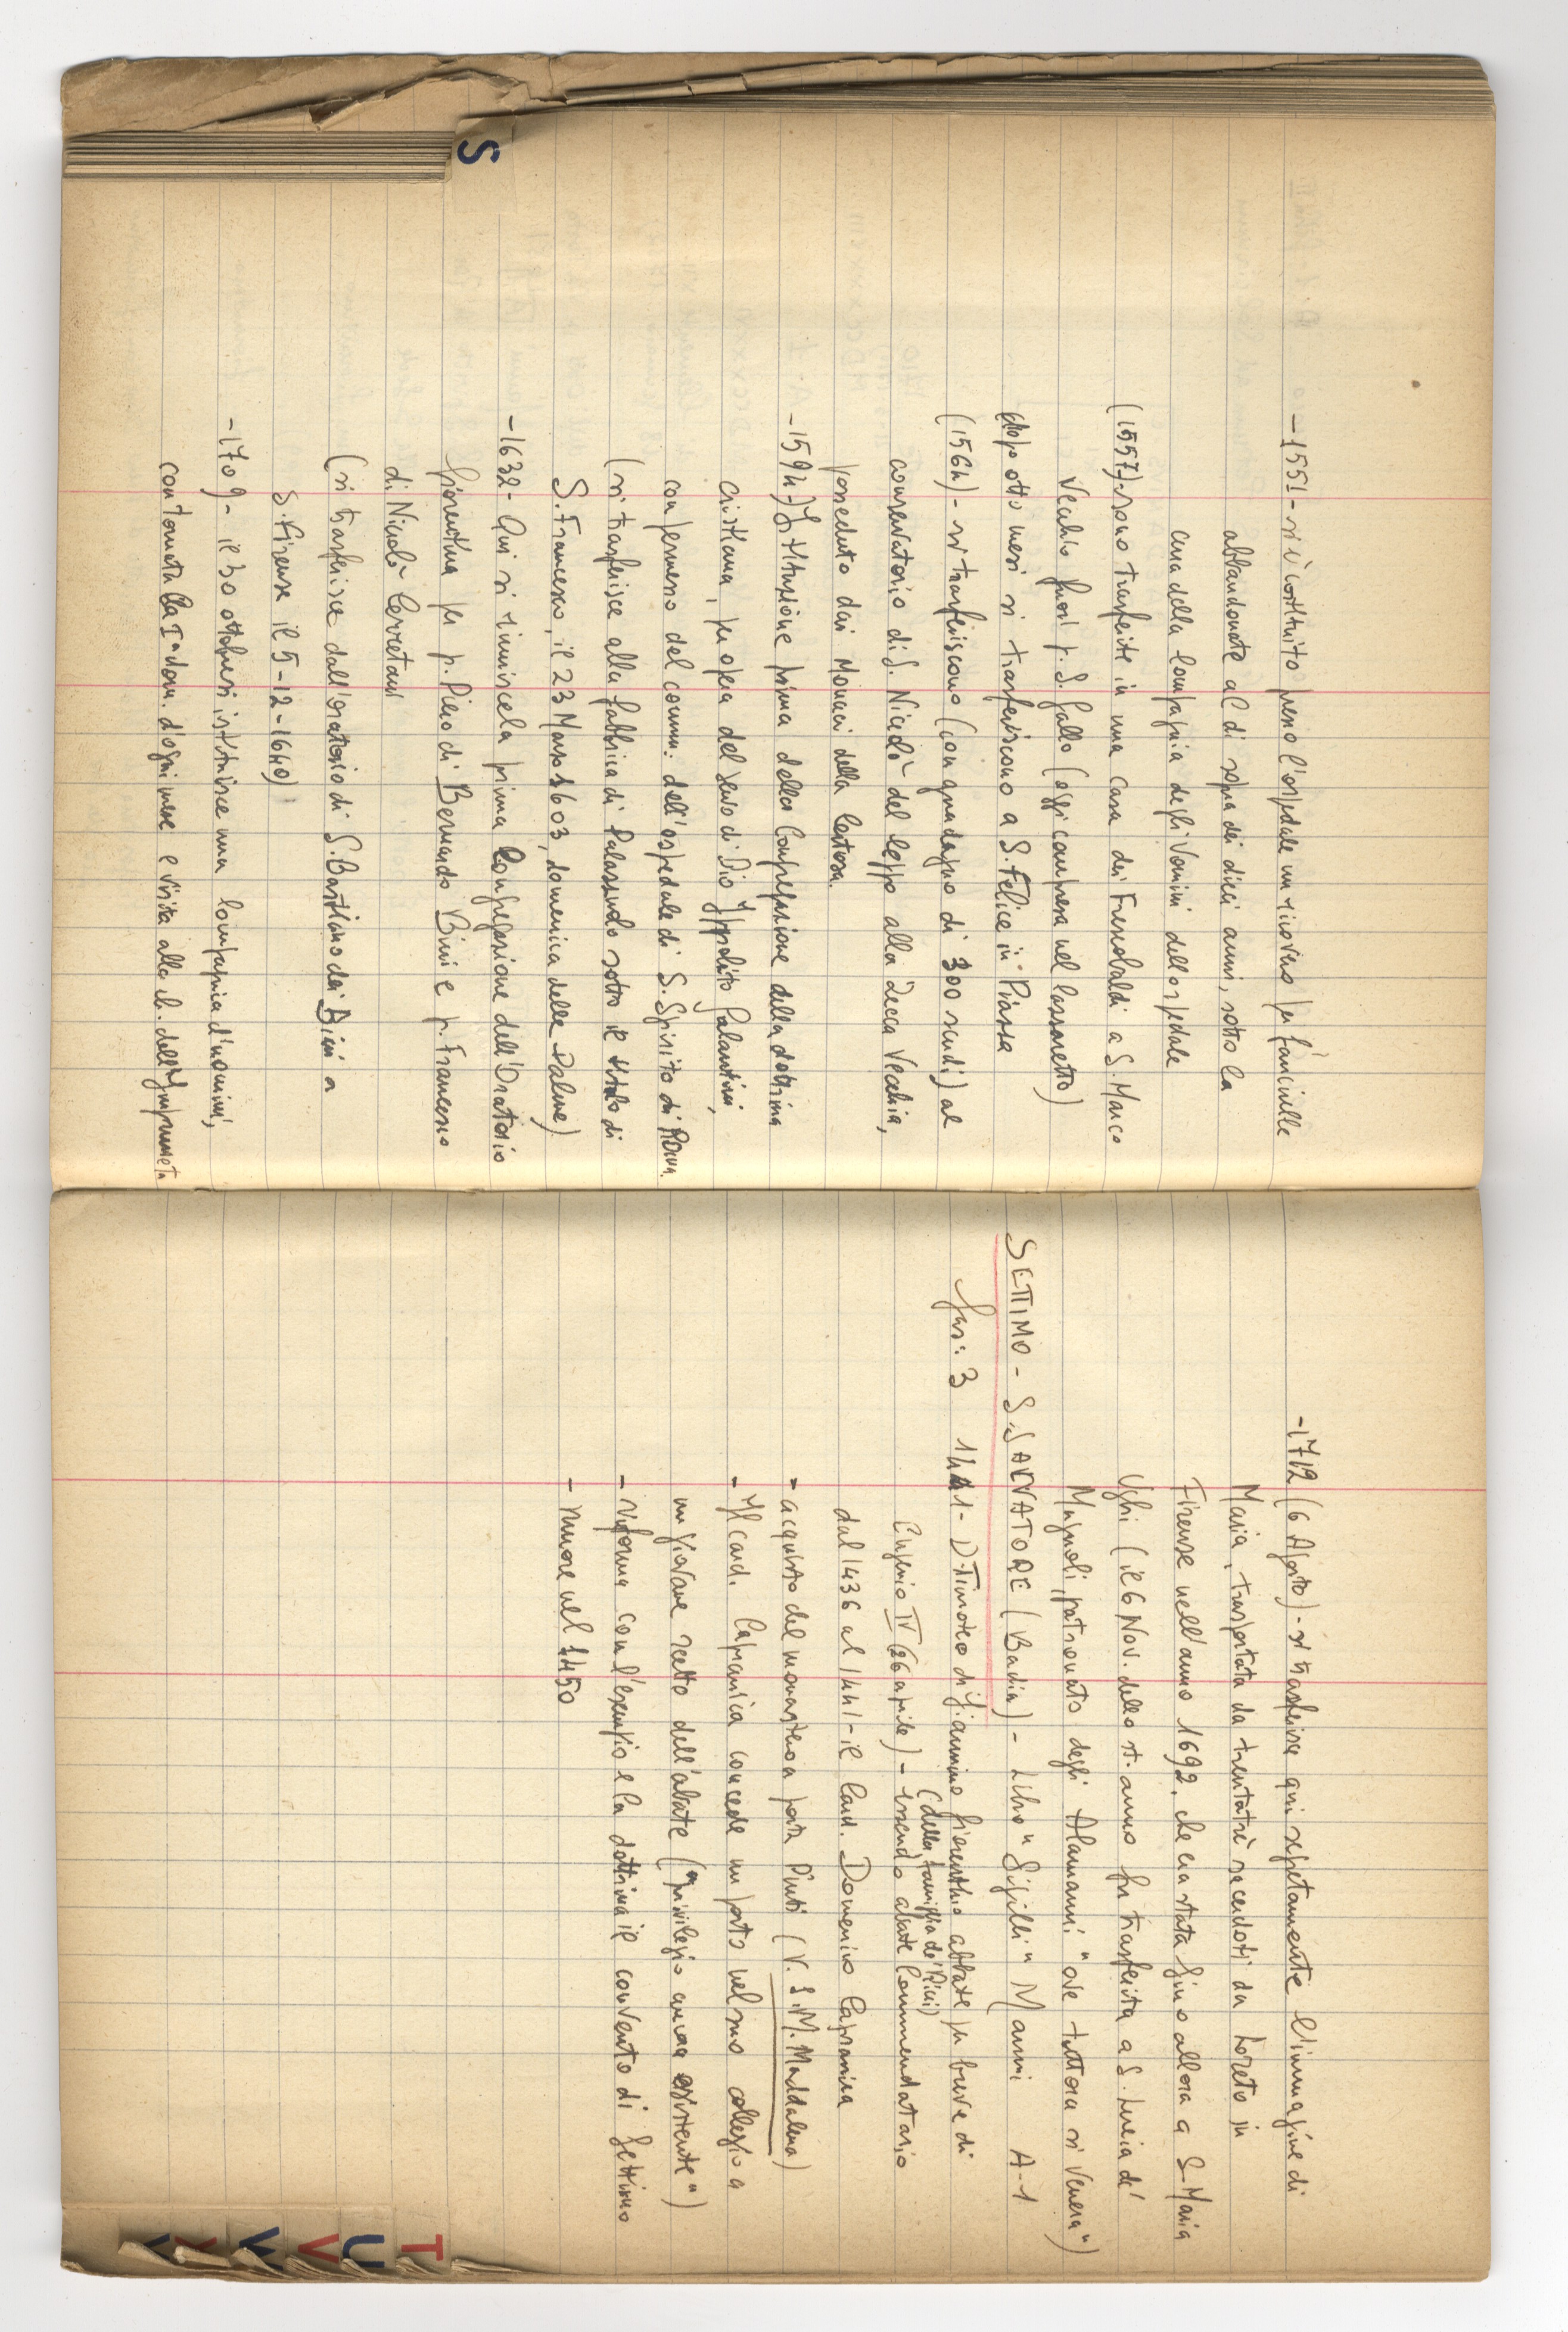 - 1551 - si è costituito presso l'ospedale un ricovero per fanciulle
abbandonate al di sopra dei dieci anni, sotto la
cura della Compagnia degli Uomini dell'ospedale
(1557) - sono trasferite in una casa dei Frescobaldi a S. Marco
Vecchio fuori p. S. Gallo (oggi compresa nel Lazzaretto)
dopo otto mesi si trasferiscono a S. Felice in Piazza
(1564) - si trasferiscono (con guadagno di 300 scudi) al
conservatorio di S. Nicolò del Ceppo alla Zecca Vecchia,
posseduto dai Monaci della Certosa.
- 1594 - Istituzione prima della Congregazione della dottrina
cristiana, per opera del servo di Dio Ippolito Galantini,
con permesso del comm: dell'ospedale di S. Spirito di Roma.
(si trasferisce alla fabbrica di Palazzuolo sotto il titolo di
S. Francesco, il 23 Marzo 1603, domenica delle Palme)
- 1632 - Qui si riunisce la prima Congregazione dell'Oratorio
fiorentina per p. Piero di Bernardo Bini e p. Francesco
di Nicolò Cerretani
(si trasferisce dall'Oratorio di S. Bastiano dei Bini a
S. Firenze il 5-12-1640)
- 1709 - il 30 ottobre si istituisce una Compagnia d'uomini,
con tornata la Iª dom. d'ogni mese e visita alla ch. dell'Impruneta
- 1712 (6 Agosto) - si trasferisce qui segretamente l'immagine di
Maria, trasportata da trentatrè sacerdoti da Loreto in
Firenze nell'anno 1692, che era stata fino allora a S. Maria
Ughi (il 6 Nov. dello st. anno fu trasferita a S. Lucia de'
Magnoli, patronato degli Alamanni "ove tuttora si venera")
SETTIMO - S. SALVATORE (Badia) - Libro "Sigilli" Manni A-1
fasc: 3 1441 - D. Timoteo di Giannino fiorentino abbate per breve di
(della famiglia de' Ricci)
Eugenio IV (26 aprile) - essendo abate Commendatario
dal 1436 al 1441 - il Card. Domenico Capranica
- acquisto del monastero a porta Pinti (V. S. M. Maddalena)
- Il card. Capranica concede un posto nel suo collegio a
un giovane scelto dell'abate ("privilegio ancora esistente")
- riforma con l'esempio e la dottrina il convento di Settimo
- muore nel 1450
S
T
U
V
W